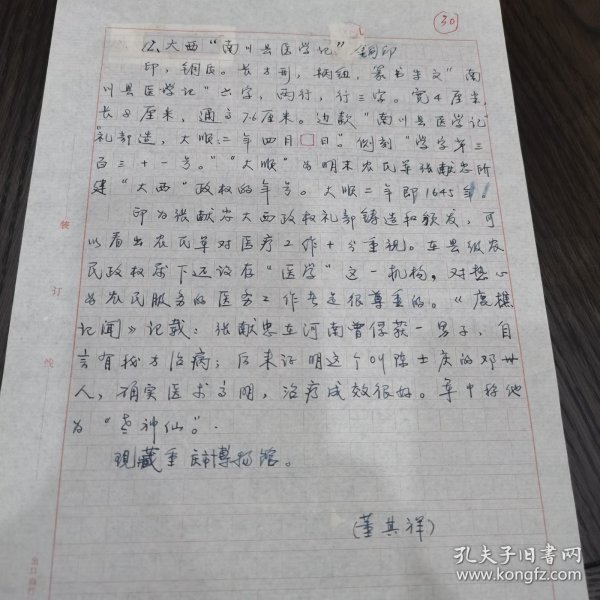 30
12.大西“南川县医学记”铜印
印，铜质。长方形，柄纽，篆书朱文“南
川县医学记”六字，两行，行三字。宽4厘米，
长8厘米，通高7.6厘米。边款“南川县医学记”
“礼部造，大顺二年四月□日”。侧刻“学字第三
百三十一号。”“大顺”为明末农民军张献忠所
建“大西”政权的年号。大顺二年即1645年。
印为张献忠大西政权礼部铸造和颁发，可
以看出农民军对医疗工作十分重视。在县级农
民政权属下还设有“医学”这一机构，对热心
为农民服务的医务工作者是很尊重的。《鹿樵
记闻》记载：张献忠在河南曾俘获一男子，自
言有秘方治病；后来证明这个叫陈士庆的邓州
人，确实医术高明，治疗成效很好。军中称他
为“老神仙”。
现藏重庆市博物馆。
（董其祥）
装
订
线
孔夫子旧书网
www.kongfz.com